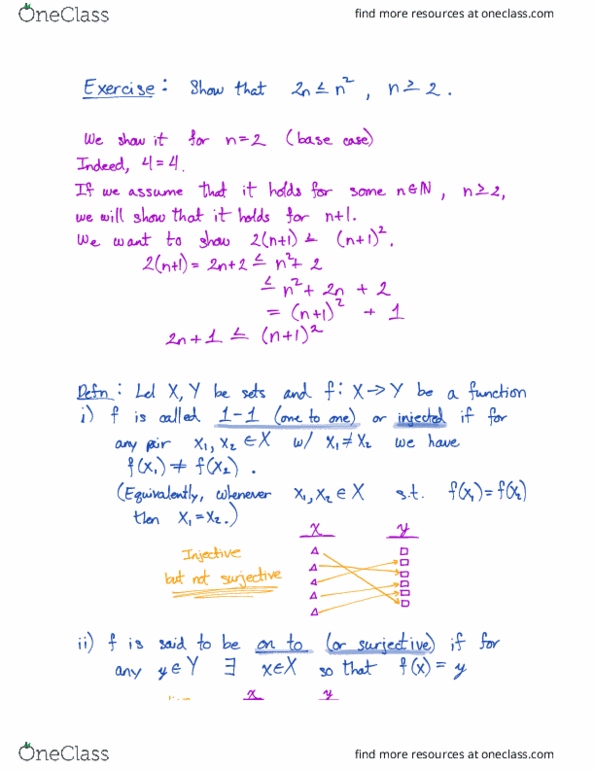 OneClass
find more resources at oneclass.com
Exercise: Show that 2n ≤ n², n ≥ 2.
We show it for n=2 (base case)
Indeed, 4=4.
If we assume that it holds for some n∈ℕ, n≥2,
we will show that it holds for n+1.
We want to show 2(n+1) ≤ (n+1)².
2(n+1) = 2n+2 ≤ n²+2
≤ n²+2n+2
= (n+1)² + 1
2n+1 ≤ (n+1)²
Defn: Let X, Y be sets and f: X→Y be a function
i) f is called 1-1 (one to one) or injected if for
any pair x₁, x₂ ∈ X w/ x₁≠x₂ we have
f(x₁) ≠ f(x₂).
(Equivalently, whenever x₁, x₂ ∈ X s.t. f(x₁)=f(x₂)
then x₁=x₂.)
X Y
Injective
but not surjective
ii) f is said to be on to (or surjective) if for
any y∈Y ∃ x∈X so that f(x)=y
X Y
OneClass
find more resources at oneclass.com